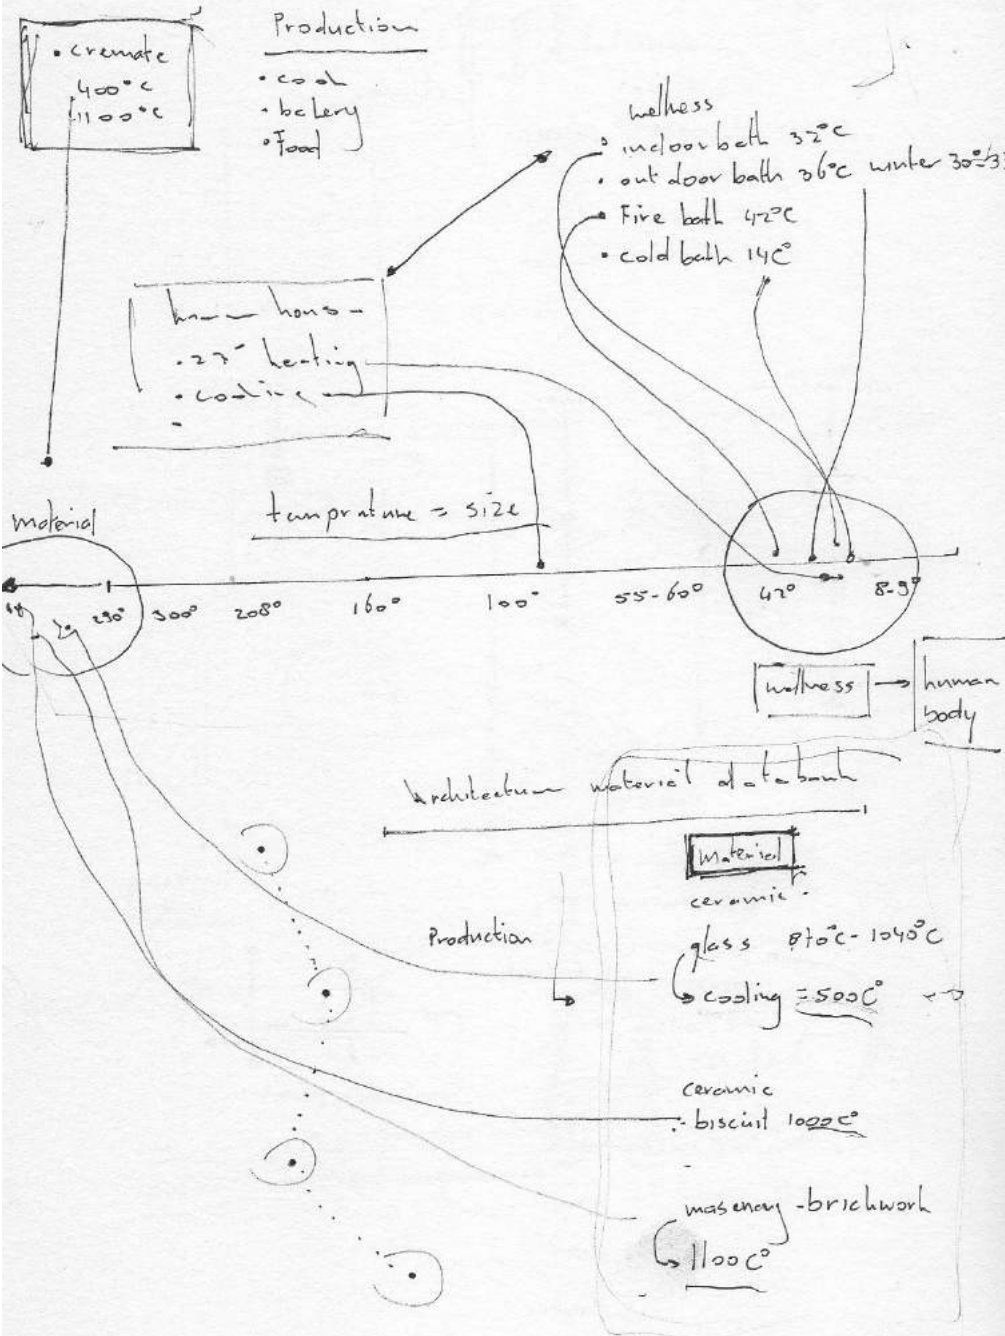 • cremate
400°c
1100°c
Production
• cook
• bakery
• Food
wellness
• indoor bath 32°c
• outdoor bath 36°c winter 30°/3
• Fire bath 42°c
• cold bath 14c°
hous
• 27° heating
• cooling
tamprature = size
material
290° 300° 208° 160° 100° 55-60° 42° 8-9°
wellness → human
body
Architecture material databank
material
ceramic
Production
glass 870°c - 1040°c
cooling = 500c°
ceramic
- biscuit 1000c°
masenary - brickwork
1100c°